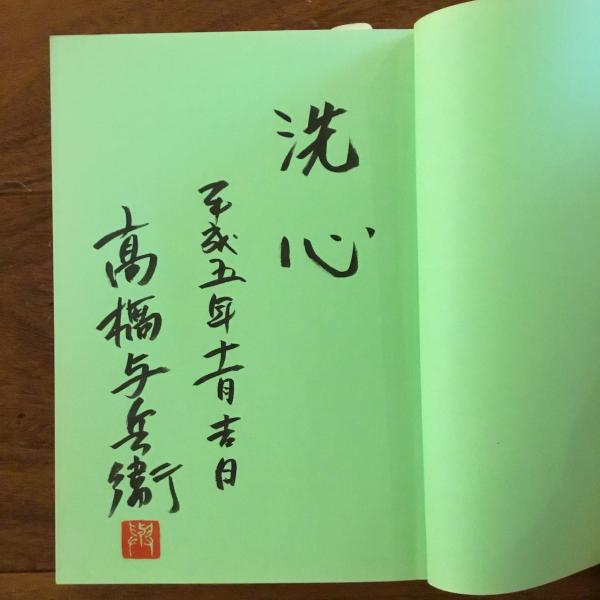 洗心
平成五年十一月吉日
高橋与兵衛